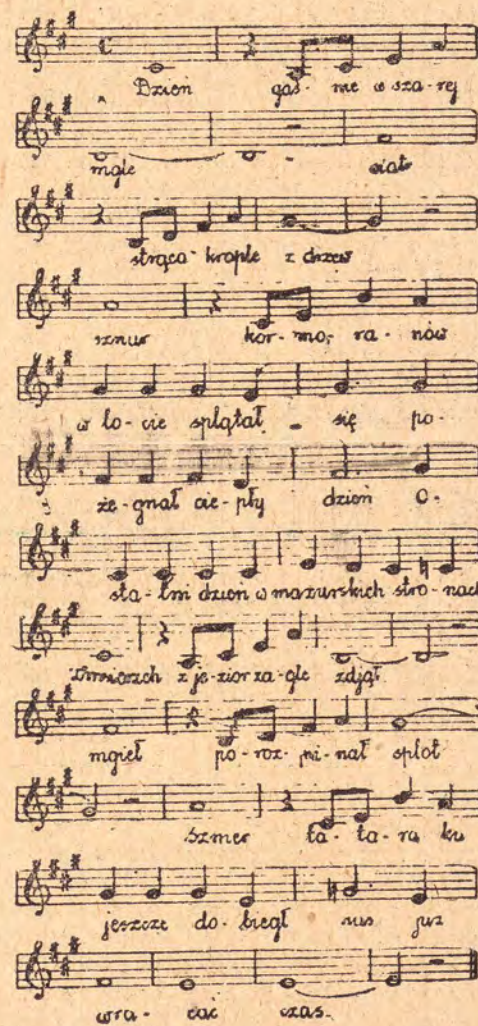 Dzień gaś- nie w sza-rej
mgle wiatr
strąca krople z drzew
sznur kor-mo- ra- nów
w lo-cie splątał - się po-
że-gnał cie-pły dzień O-
sta-tni dzień w mazurskich stro-nach
Zmierzch z je-zior ża-gle zdjął
mgieł po-roz-pi-nał splot
Szmer ta-ta-ra ku
jeszcze do-biegł nas już
wra- cać czas.